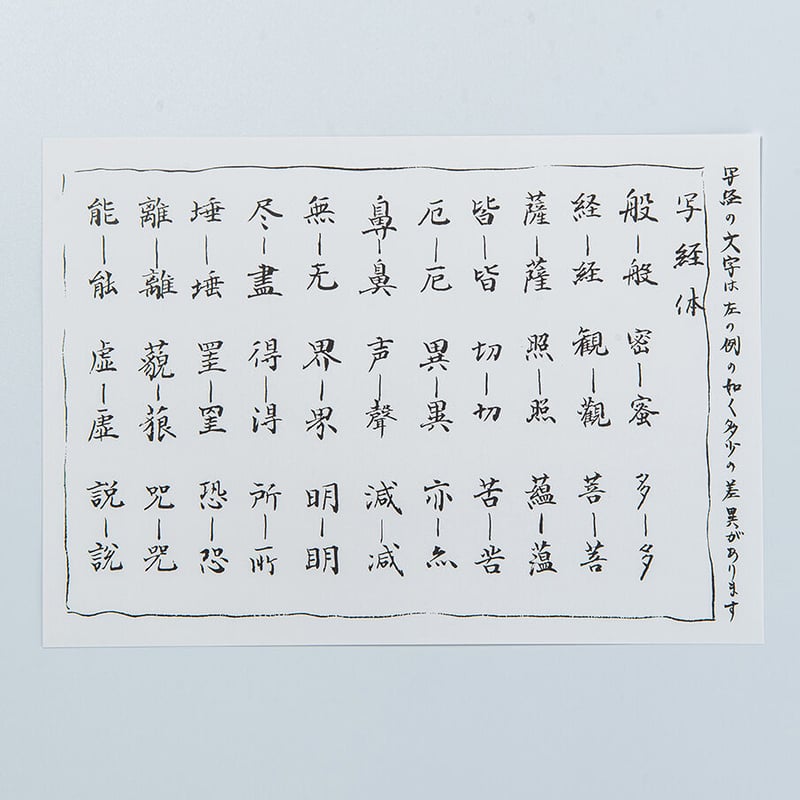 写経の文字は左の例の如く多少の差異があります
写経体
般―般 密―蜜 多―多
経―経 観―觀 菩―菩
薩―薩 照―照 蘊―薀
皆―皆 切―切 苦―苦
厄―厄 異―異 亦―亦
鼻―鼻 声―聲 減―减
無―无 界―界 明―明
尽―盡 得―得 所―所
埵―埵 罣―罣 恐―恐
離―離 藐―藐 呪―咒
能―能 虚―虛 説―説